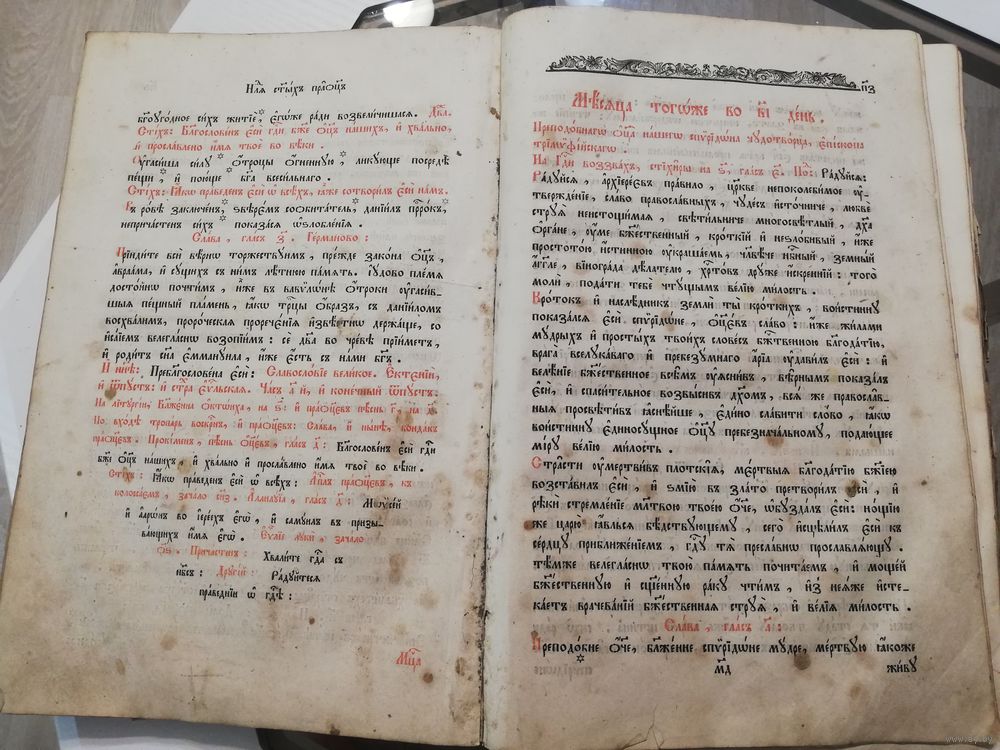 Нлѧ ст҃ыхъ прао҃цъ
бг҃оугодное сихъ житїѐ, є҆гѡ́же ради возвеличишасѧ. Два.
Стїхъ: Блг҃ословенъ є҆сѝ гдⷭ҇и бж҃е ѻ҆ц҃ъ нашихъ, и҆ хвально,
и҆ прославлено и҆мѧ твоѐ во вѣки.
Оу҆гасиша силу ѻ҆троцы ѻ҆гненную, ликующе посредѣ
пещи, и҆ поюще бг҃а всесильнаго.
Стїхъ: Ꙗ҆́кѡ праведенъ є҆сѝ ѡ҆ всѣхъ, ꙗ҆̀же сотворилъ є҆сѝ намъ.
Въ ровѣ заключенъ, ѕвѣремъ соѡбитатель, данїилъ прⷪ҇рокъ,
непричастенъ сихъ показасѧ ѡ҆ѕлобленїѧ.
Слава, гласъ з҃. Германово:
Прїидите всѝ вѣрнѡ торжествуимъ, прежде закона ѻ҆ц҃ъ,
авраама, и҆ сущихъ съ нимъ лѣтную память. їудово племѧ
достойнѡ почтимъ, и҆̀же въ вавѷлѡнѣ ѻ҆троки оу҆гасив-
шыѧ пещный пламень, ꙗ҆́кѡ трⷪ҇цы ѻ҆бразъ, съ данїиломъ
восхвалимъ, пророческаѧ проречєнїѧ и҆звѣстнѡ держаще, со
и҆саїемъ велегласнѡ возопїимъ: се два во чревѣ прїиметъ,
и҆ родитъ сн҃а є҆ммануила, и҆̀же є҆́сть съ нами бг҃ъ.
И҆ нн҃ѣ: Преблагословена є҆сѝ: Славословїе великое. Єктенїи,
и҆ ѿпустъ: и҆ стрⷭ҇а є҆ѵⷢ҇льскаѧ. Часъ а҃ й, и҆ конечный ѿпустъ.
На литургїи, Блаженна ѻ҆ктѡиха, на ѕ҃: и҆ прао҃цевъ пѣснь г҃, на д҃.
По входѣ тропарь воскрⷭ҇нъ, и҆ прао҃цевъ: Слава, и҆ нынѣ, кондакъ
прао҃цевъ. Прокіменъ, пѣснь ѻ҆ц҃евъ, гласъ д҃: Блг҃ословенъ є҆сѝ гдⷭ҇и
бж҃е ѻ҆ц҃ъ нашихъ, и҆ хвально и҆ прославлено и҆мѧ твоѐ во вѣки.
Стїхъ: Ꙗ҆́кѡ праведенъ є҆сѝ ѡ҆ всѣхъ: Апⷭ҇лъ прао҃цевъ, къ
колоссаемъ, зачало сн҃з. Аллилуїа, гласъ д҃: Мѡѷсей
и҆ ааронъ во їереехъ є҆гѡ̀, и҆ самуилъ въ призы-
вающихъ и҆мѧ є҆гѡ̀. Єѵⷢ҇лїе луки, зачало
ѻ҃ѕ. Причастенъ: Хвалите гдⷭ҇а съ
нб҃съ: Другїй: Радуйтесѧ
праведнїи ѡ҆ гдⷭ҇ѣ:
Мцⷭ҇а
п҃з
Мѣсѧца тогѡ́же во в҃і день.
Преподобнагѡ ѻ҆ц҃а нашегѡ спѷрїдѡна чудотворца, є҆пископа
трїмѷфїйскагѡ.
На Гдⷭ҇и воззвахъ, стїхиры на ѕ҃, гласъ є҃. Поⷣ: Радуйсѧ:
Радуйсѧ, архїереѡвъ правило, цр҃кве непоколебимое оу҆-
твержденїе, славо православныхъ, чудесъ и҆сточниче, любвѐ
струѧ̀ неистощимаѧ, свѣтильниче многосвѣтлый, дх҃а
ѻ҆ргане, оу҆ме бжⷭ҇твенный, кроткїй и҆ незлобивый, и҆̀же
простотою и҆стинною оу҆крашаемь, чл҃вѣче нбⷭ҇ный, земный
агг҃ле, вїнограда дѣлателю, хрⷭ҇товъ друже и҆скреннїй: того
молѝ, подати тебе чтущымъ велїю милость.
Кротокъ и҆ наслѣдникъ землѝ ты̀ кроткихъ, воистинну
показалсѧ є҆сѝ спѷрїдѡне, ѻ҆ц҃євъ славо: и҆̀же жилами
мудрыхъ и҆ простыхъ твоихъ словесъ бжⷭ҇твенною благодатїю,
врага вселукаваго и҆ превезумнаго арїа оу҆давилъ є҆сѝ: и҆
велѣнїе бжⷭ҇твенное всѣмъ оу҆ѧснивъ, вѣрнымъ показалъ
є҆сѝ, и҆ спасительное возвысивъ дх҃омъ, всѧ̑ же православ-
ныѧ просвѣтивъ ꙗ҆снѣйше, є҆дино славити слово, ꙗ҆́кѡ
воистинну є҆диносущное ѻ҆ц҃у пребезначальному, подающее
мїру велїю милость.
Страсти оу҆мертвивъ плотскїѧ, мертвыѧ благодатїю бж҃їею
возставилъ є҆сѝ, и҆ ѕмїю въ злато претворилъ є҆сѝ, и҆
рѣки стремленїе мл҃твою твоею ѻ҆́ч҃е, ѡ҆буздалъ є҆сѝ: нощїю
же царю ꙗ҆́вльсѧ бѣдствующему, сего и҆сцѣлилъ є҆сѝ къ
сердцу приближенїемъ, гдⷭ҇у тѧ̀ преславнѡ прославляющу.
тѣмже велегласнѡ твою память почитаемъ, и҆ мощей
бжⷭ҇твенную и҆ сщ҃енную раку чтимъ, и҆з неѧ́же и҆сте-
каетъ врачеванїй бжⷭ҇твеннаѧ струѧ̀, и҆ велїѧ милость.
Слава, гласъ а҃:
Преподобне ѻ҆́ч҃е, блаженне спѷрїдѡне мудре, мертвую ꙗ҆́коже
мд҃
живу
www.ay.by